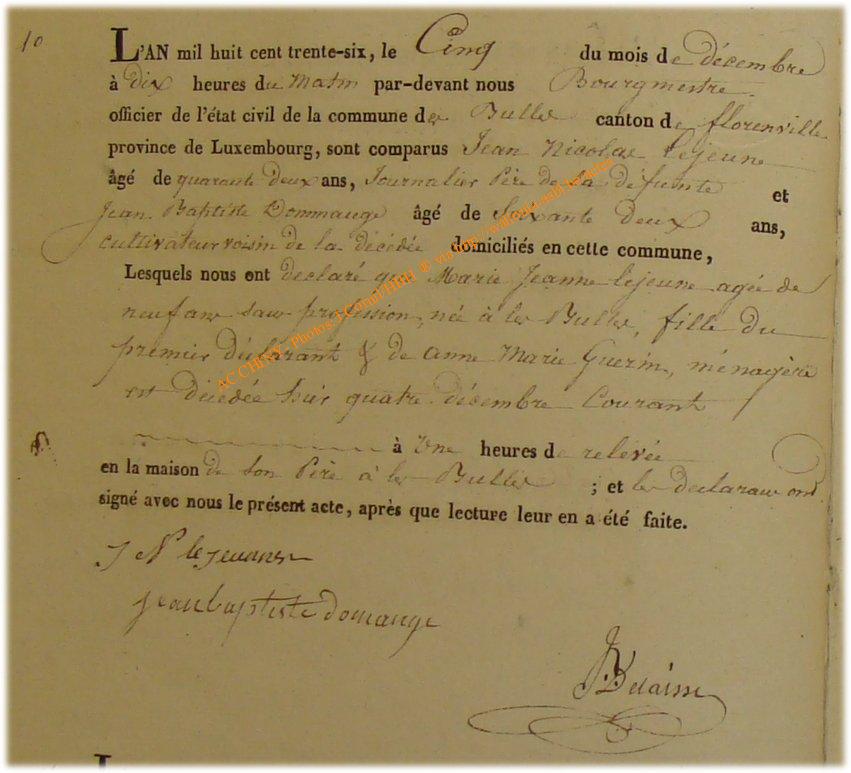 10
L'AN mil huit cent trente-six, le Cinq du mois de décembre
à dix heures du matin par-devant nous Bourgmestre
officier de l'état civil de la commune des Bulles canton de florenville
province de Luxembourg, sont comparus Jean Nicolas Lejeune
âgé de quarante deux ans, Journalier Père de la défunte et
Jean Baptiste Dommange âgé de Soixante Deux ans,
cultivateur voisin de la décédée domiciliés en cette commune,
Lesquels nous ont declaré que Marie Jeanne lejeune agée de
neuf ans sans profession, née à les Bulles, fille du
premier déclarant & de anne Marie Guerin, ménagère
est décédée hier quatre décembre Courant
à Une heures de relevée
en la maison de son Père à les Bulles ; et les declarans ont
signé avec nous le présent acte, après que lecture leur en a été faite.
J N le jeune
jean baptiste domange
ACCHINY - Photos J.Comil HBH ® via http://